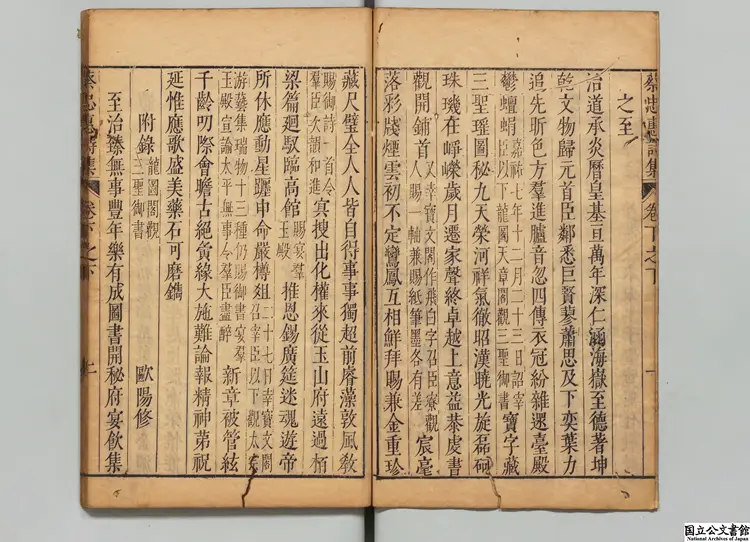 蔡忠惠詩集 卷下之下
之至
治道承炎曆皇基亘萬年深仁涵海嶽至德著坤
乾文物歸元首臣鄰悉巨賢蓼蕭思及下奕葉力
追先昕色方羣進臚音忽四傳衣冠紛雜遝臺殿
鬱蟺蜎 嘉祐七年十二月二十三日詔宰臣以下龍圖天章閣觀三聖御書 寶字藏
三聖瑤圖秘九天榮河祥氣徹昭漢曉光旋磊砢
珠璣在崢嶸歲月遷家聲終卓越上意益䖍書
觀開鋪首 又幸寶文閣作飛白字召臣寮觀人賜一軸兼賜紙筆墨各有差 宸毫
落彩牋煙雲初不定鸞鳳互相鮮拜賜兼金重珍
藏尺璧全人人皆自得事事獨超前睿藻敦風敎
賜御詩一首令羣臣次韻和進 眞搜出化權來從玉山府遠過栢
梁篇廻馭臨高館 賜宴羣玉殿 推恩錫廣筵迷魂遊帝
所休應動星躔申命嚴樽俎 二十七日幸寶文閣召宰臣以下觀太宗
游藝集瑞物十三種仍賜御書宴羣玉殿宣諭太平無事令羣臣盡醉 新章被管絃
千齡叨際會瞻古絕夤緣大施難論報精神第祝
延惟應歌盛美藥石可磨鐫
附錄 龍圖閣觀三聖御書 歐陽修
至治臻無事豐年樂有成圖書開秘府宴飲集
蔡忠惠詩集 卷下之下
国立公文書館
National Archives of Japan